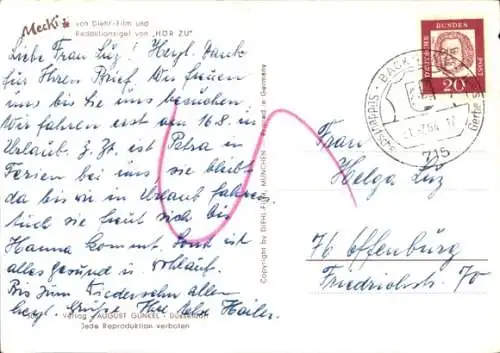 Mecki von Diehl-Film und
Redaktionsigel von „HÖR ZU"
Liebe Frau Luz! Herzl. Dank
für Ihren Brief. Wir freuen
uns bis Sie uns besuchen.
Wir fahren erst am 16.8. in
Urlaub. Z. Zt. ist Petra in
Ferien bei uns sie bleibt
da bis wir in Urlaub fahren
Auch sie freut sich bis
Hanna kommt. Sonst ist
alles gesund u. wohlauf.
Bis zum Wiedersehn allen
herzl. Grüße Ihre
Verlag AUGUST GUNKEL · Düsseldorf
Jede Reproduktion verboten
Copyright by DIEHL-FILM, MÜNCHEN Printed in Germany
DEUTSCHE BUNDESPOST
20
BACKNANG
715
Frau
Helga Luz
76 Offenburg
Friedrichstr. 70